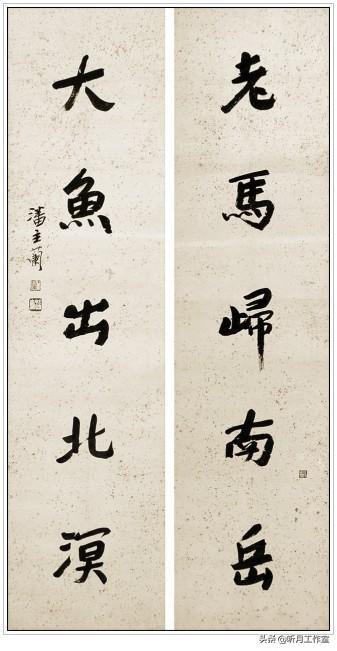 老馬歸南岳
大魚出北溟
潘主蘭
头条@昕月工作室